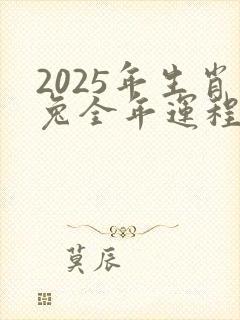 2025年生肖
兔全年运程
莫辰